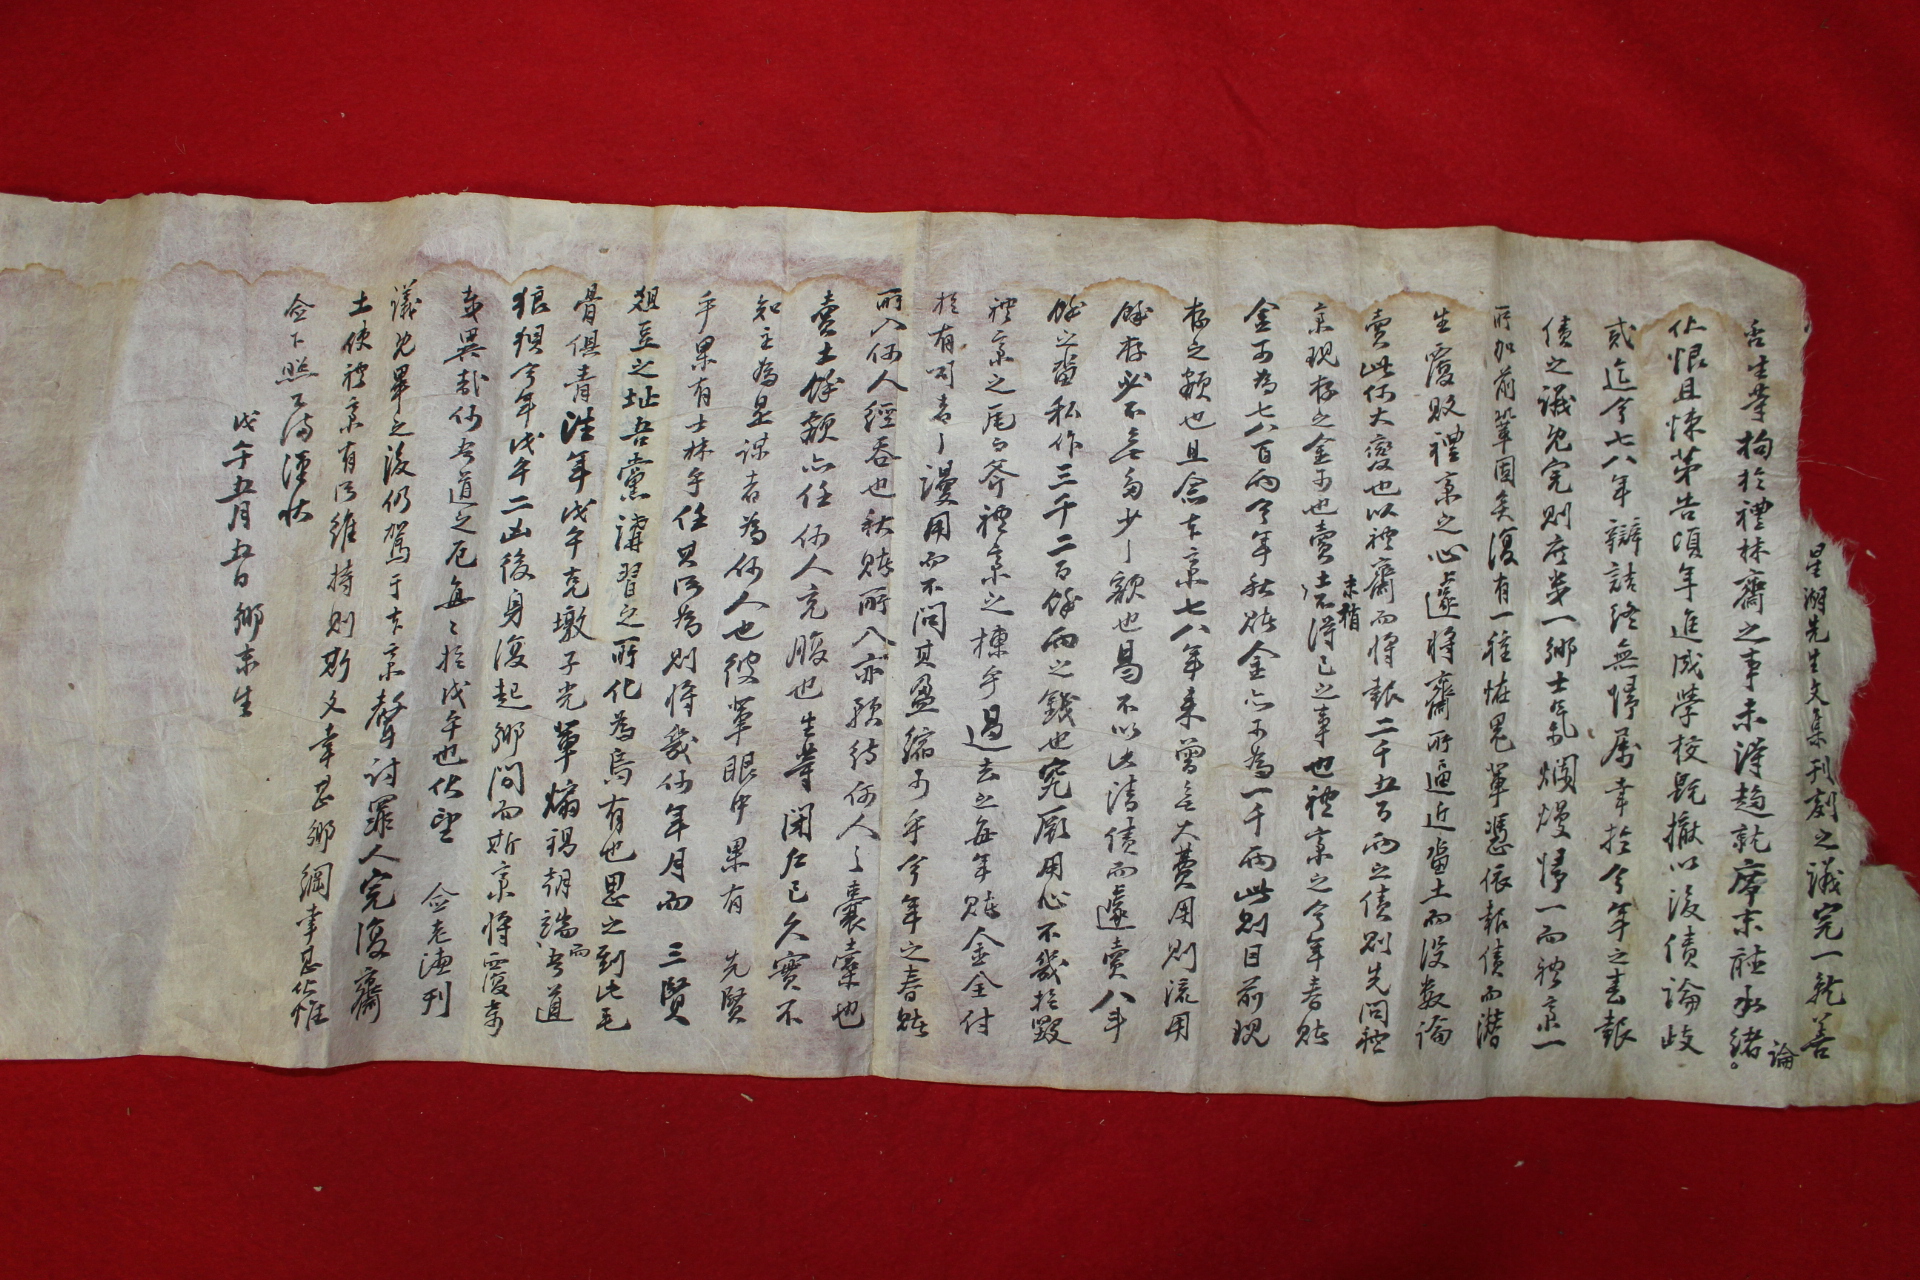 星湖先生文集刊刻之議完一龍善
吾生等拘於禮林齋之事未得趨就席末旣承緖論
仕恨且悚第告頃年進減學校旣撤以後債論歧
貳迄今七八年辯詰終無歸屬幸於今年之春報
債之議允完則庶幾一鄉士氣爛熳歸一而禮宗一
所加前鞏固矣復有一種怪鬼輩憑依報債而潛
生覆敗禮宗之心遽將齋所逼近畓土而沒數論
賣此何大變也以禮齋而將報二千五百兩之債則先問禮
宗現存之金可也賣土未稍不得已之事也禮宗之今年春賭
金可為七八百兩今年秋賭金亦可為一千兩此則目前現
存之額也且念本宗七八年來曾無大費用則流用
餘存必不無多少額也曷不以此淸債而遽賣八斗
餘之畓私作三千二百餘兩之錢也究厥用心不幾於毀
禮宗之尾而斧禮宗之棟乎過去之每年賭金全付
於有司者漫用而不問其盈縮可乎今年之春賭
所入何人經吞也秋賭所入亦預待何人之囊橐也
賣土餘額亦任何人充腹也生等閑在已久實不
知主為是謀者為何人也彼輩眼中果有 先賢
乎果有士林乎任其所為則將幾何年月而 三賢
俎豆之址吾黨講習之所化為烏有也思之到此毛
骨俱靑往年戊午克墩子光輩煽禍朝端而吾道
狼狽今年戊午二凶後身復起鄉問而斯宗將覆亦
莫異哉何吾道之厄每每於戊午也伏望 僉老速刊
議允畢之後仍駕于本宗聲討罪人完復齋
土使禮宗有所維持則斯文幸甚鄉綱幸甚伏惟
僉下照不備謹狀
戊午五月五日鄉末生